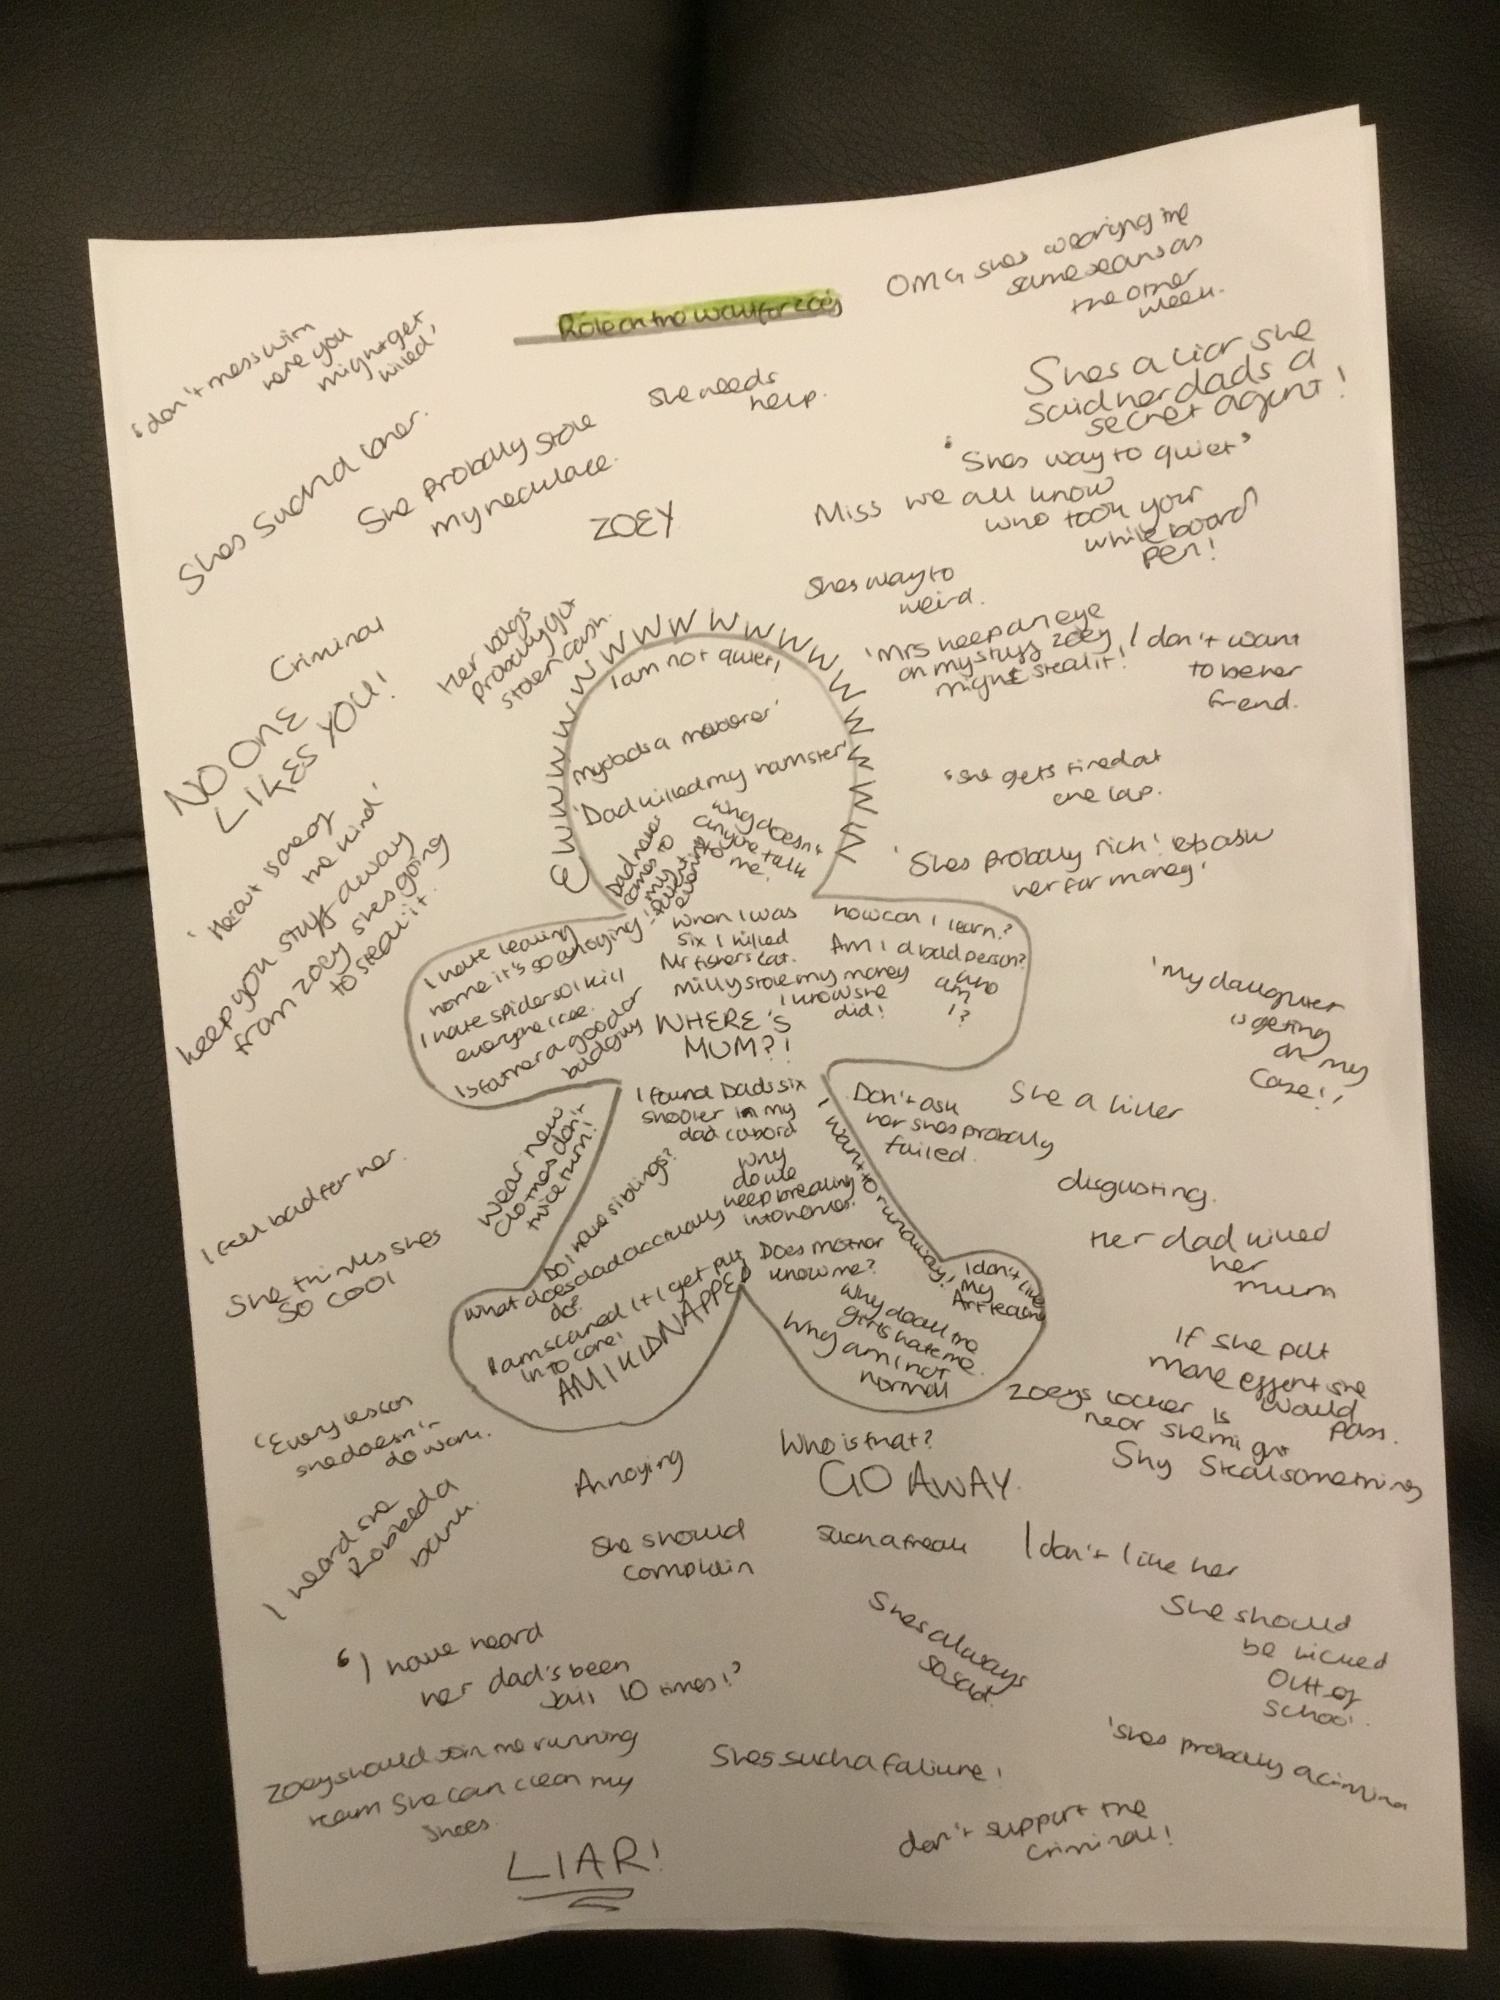 Role on the wall for zoey
OMG shes wearing the
same jeans as
the other
week.
'don't mess with
her you
might get
killed'
She needs
help.
Shes a liar she
said her dads a
secret agent!
Shes such a loner.
She probally stole
my neculace.
'Shes way to quiet'
ZOEY
Miss we all know
who took your
while board
pen!
Shes way to
weird.
Criminal
Her bags
probally got
stolen cash.
'Mrs keep an eye
on my stuff zoey
might steal it!
I don't want
to be her
frend.
NO ONE
LIKES YOU!
Ewwwwwwwwwwwwwwwwwwwwwwww
I am not quiet!
my dads a
'Dad killed my hamster'
Dad never
comes to
my
parents
evening
why doesn't
anyone talk
to me?
'she gets tired at
one lap.
'Shes probally rich! lets ask
her for money'
'Her out is one of
the kind'
keep you stuff away
from zoey shes going
to steal it.
I hate leaving
home it's so annoying
I hate spiders so I kill
everyone I see.
Is father a good or
bad guy
when I was
six I killed
Mr fishers cat.
milly stole my money
I know she
did!
WHERE'S
MUM?!
how can I learn?
Am I a bad person?
who
am
I?
'My daughter
is geting
on my
case!!
I found Dads six
shooter in my
dad cabord
Why
do we
keep breaking
into
I want to runaway!
Do I have siblings?
What does dad acctually
do?
I am scared if I get put
in to care!
AM I KIDNAPPED
Does mother
know me?
Why do all the
girls hate me.
Why am i not
normal
I don't like
my
Art teacher
Wear new
clothes don't
twice turn!
Don't ask
her shes probally
failed.
She a killer
disgusting.
Her dad killed
her
mum
I feel bad for her.
She thinks shes
so cool
If she put
more effert she
would
pass.
zoeys locker is
near she might
steal something
Shy
'Every lesson
she doesn't
do work.
Annoying
Who is that?
GO AWAY.
I heard she
Robbed a
bank.
She should
complain
such a freak
I don't like her
'I have heard
her dad's been
Jail 10 times!'
Shes always
so sad.
She should
be kicked
Out of
school.
Zoey should Join the running
team She can clean my
shoes.
Shes such a faliure!
'shes probally a
don't support the
criminal!
LIAR!